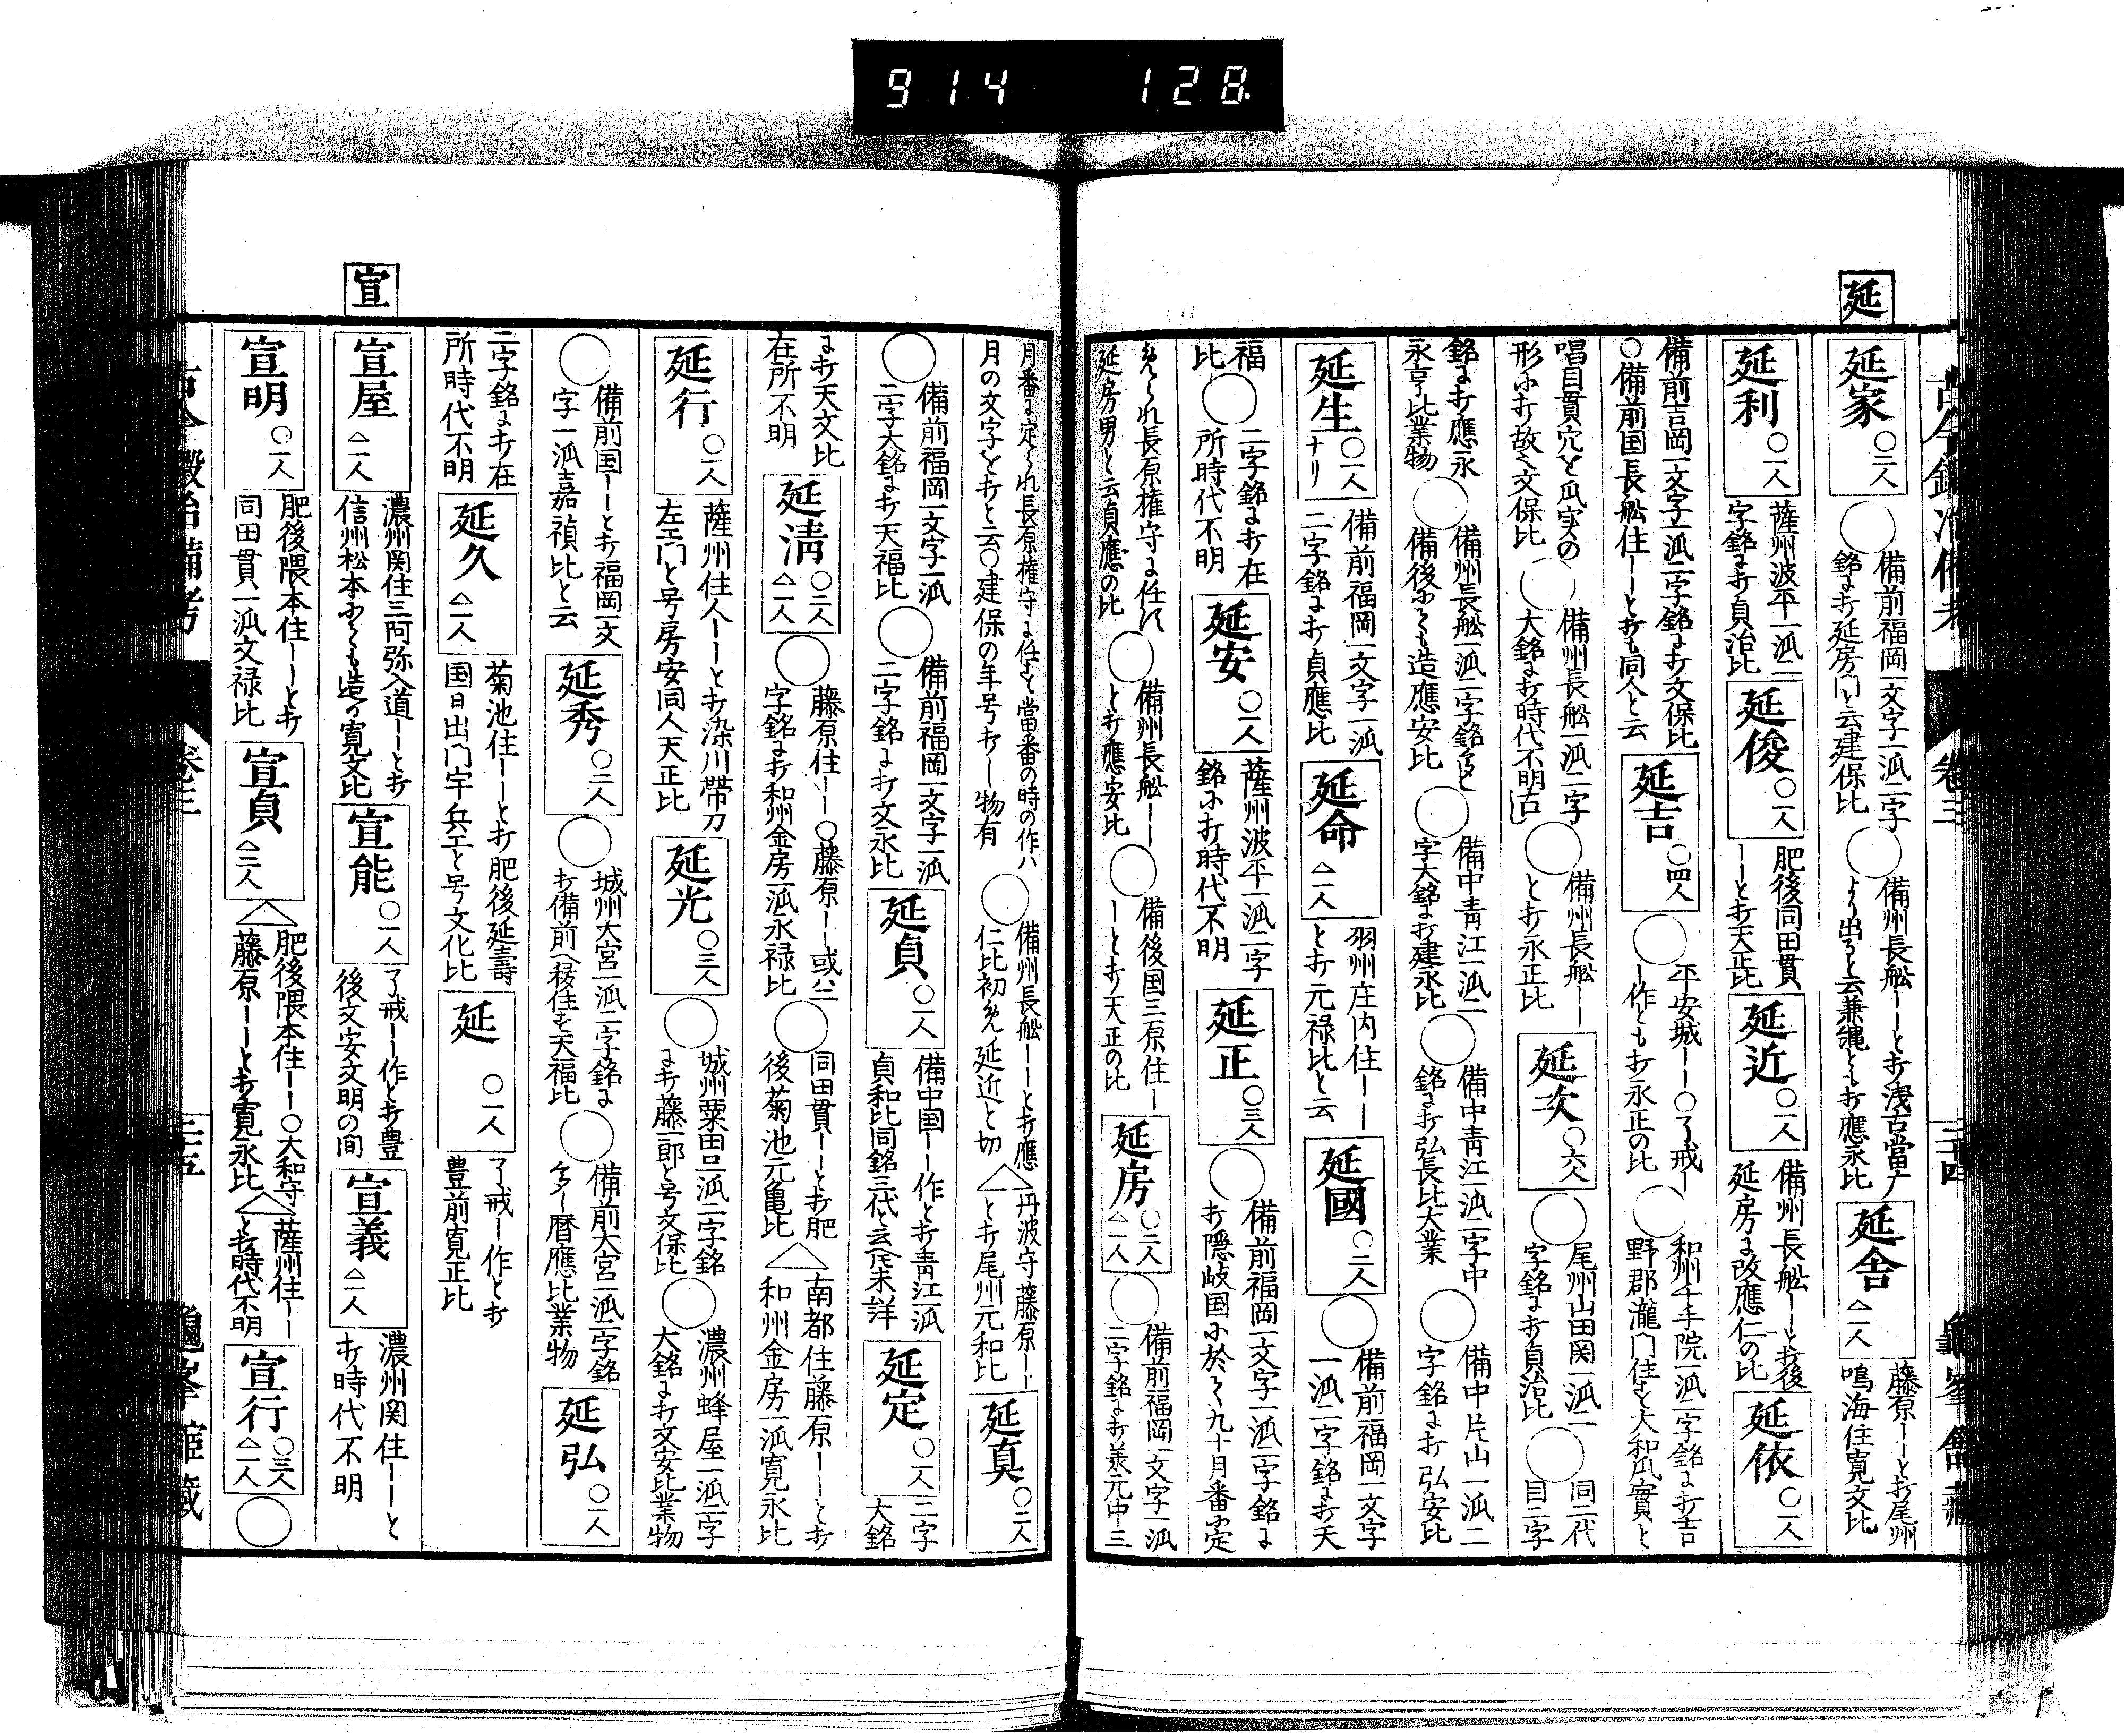 914 128
延
延家 〇二人
備前福岡一文字一派二字
銘ニ打延房門ト云建保比
備州長船ーート打浅古當广
より出ると云兼縄とも打應永比
延舎 △一人
藤原ーート打尾州
鳴海住寛文比
延利 〇一人
薩州波平一派二
字銘ニ打貞治比
延俊 〇一人
肥後同田貫
ーーと打天正比
延近 〇一人
備州長船ーーと打後
延房ニ改應仁の比
延依 〇一人
備前吉岡一文字一派二字銘ニ打文保比
〇備前国長船住ーーとも打も同人と云
延吉 〇四人
平安城ーー〇了戒ー
ー作とも打永正の比
和州千手院一派二字銘ニ打吉
野郡瀧門住す大和瓜實と
唱目貫穴を瓜実の
形に打故文保比
備州長船一派二字
大銘ニ打時代不明古
備州長船ーー
と打永正比
延次 〇六人
尾州山田関一派二
字銘ニ打貞治比
同二代
目二字
銘ニ打應永
永享比業物
備州長船一派二字銘多と
備後にても造應安比
備中青江一派二
字大銘ニ打建永比
備中青江一派二字中
銘ニ打弘長比大業
備中片山一派二
字銘ニ打弘安比
延生 〇一人ナリ
備前福岡一文字一派
二字銘ニ打貞應比
延命 △一人
羽州庄内住ーー
と打元禄比と云
延國 〇二人
備前福岡一文字
一派二字銘ニ打天
福
比
二字銘ニ打在
所時代不明
延安 〇一人
薩州波平一派二字
銘に打時代不明
延正 〇三人
備前福岡一文字一派二字銘ニ
打隠岐国に於て九十月番に定
められ長原権守ニ任ス
延房男と云貞應の比
備州長船ーー
と打應安比
備後国三原住ー
ーと打天正の比
延房 〇二人 △一人
備前福岡一文字一派
二字銘ニ打兼元中三
月番ニ定られ長原権守ニ任す當番の時の作ハ
月の文字を打と云〇建保の年号打し物有
備州長船ーーと打應
仁比初め延近と切
丹波守藤原ーー
と打尾州元和比
延真 〇二人
備前福岡一文字一派
二字大銘ニ打天福比
備前福岡一文字一派
二字銘ニ打文永比
延貞 〇一人
備中国ーー作と打青江一派
貞和比同銘三代と云
延定 〇一人
二字
大銘
ニ打天文比
在所不明
延清 〇二人 △一人
藤原住ーー〇藤原ーー或ハ二
字銘ニ打和州金房一派永禄比
同田貫ーーと打肥
後菊池元亀比
南都住藤原ーーと打
和州金房一派寛永比
延行 〇一人
薩州住人ーーと打染川帶刀
左エ門と号房安同人天正比
延光 〇三人
城州粟田口一派二字銘
ニ打藤一郎と号文保比
濃州蜂屋一派二字
大銘ニ打文安比業物
備前国ーーと打福岡一文
字一派嘉禎比と云
延秀 〇二人
城州大宮一派二字銘ニ
打備前へ移住す天福比
備前大宮一派二字銘
多し暦應比業物
延弘 〇一人
二字銘ニ打在
所時代不明
延久 △一人
菊池住ーーと打肥後延壽
国日出門宇兵エと号文化比
延 〇一人
了戒ー作と打
豊前寛正比
宣
宣屋 △一人
濃州関住三阿弥入道ーーと打
信州松本にても造る寛文比
宣能 〇一人
了戒ーー作と打豊
後文安文明の間
宣義 △一人
濃州関住ーーと
打時代不明
宣明 〇一人
肥後隈本住ーーと打
同田貫一派文禄比
宣貞 △三人
肥後隈本住ーー〇大和守
藤原ーーと打寛永比
薩州住ーー
と打時代不明
宣行 〇三人 △一人